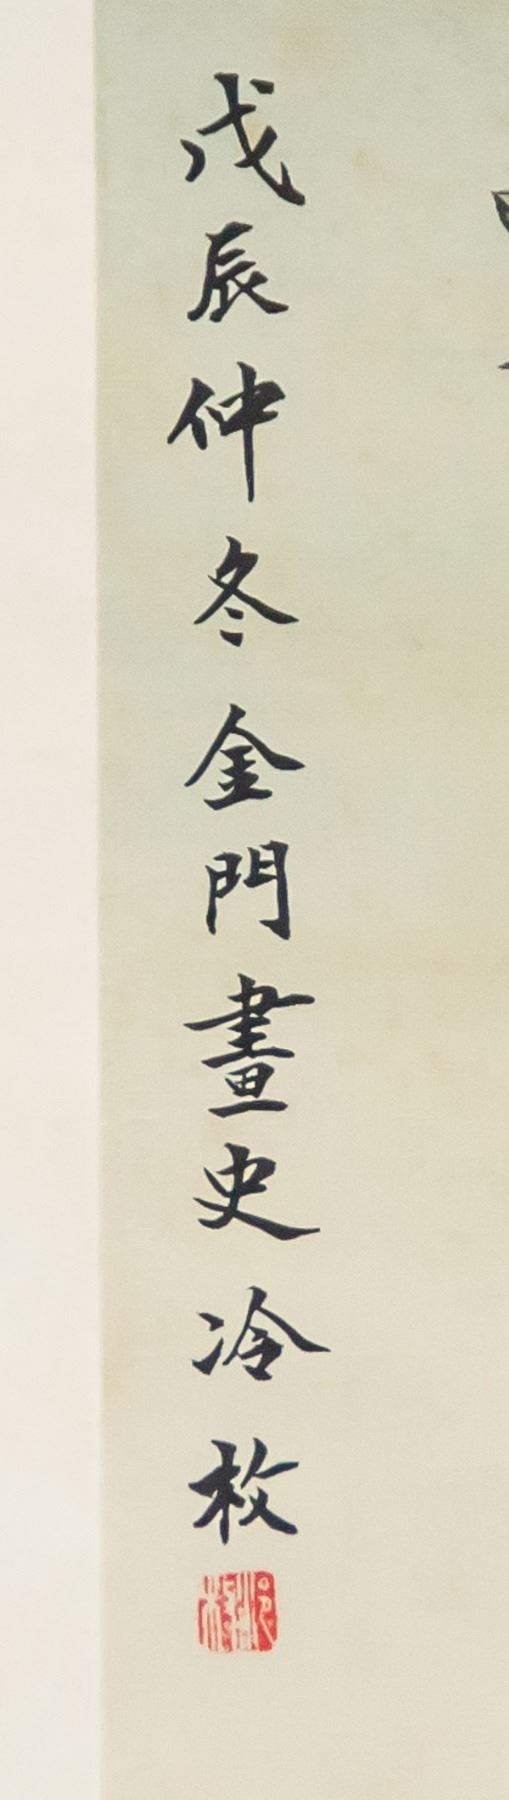 戊辰仲冬金門畫史冷枚